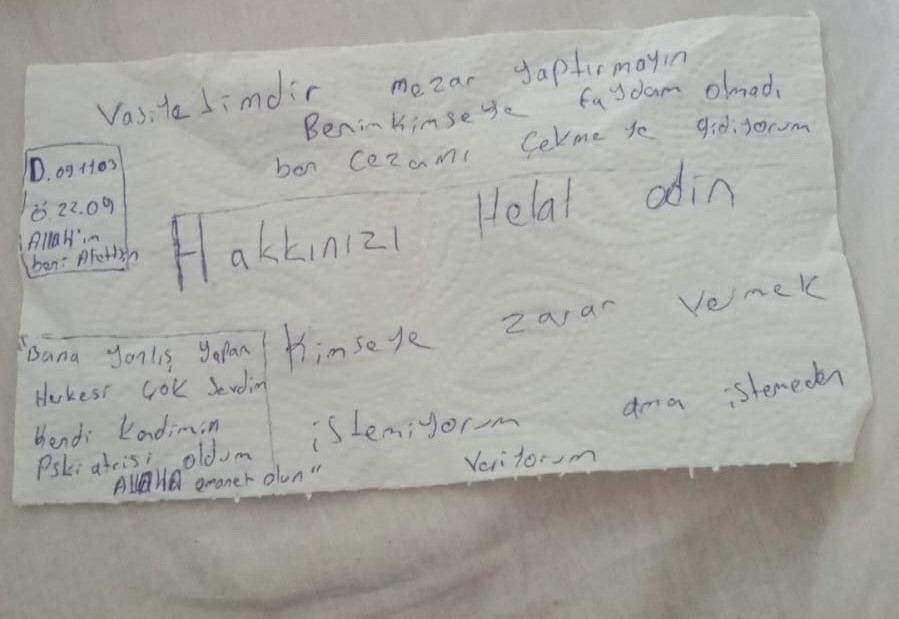 Vasiyetimdir mezar yaptırmayın
Benim kimseye faydam olmadı
ben cezamı çekmeye gidiyorum
D. 09 11 03
Ö 22.09
Allah'ın
beni Afettsin
Hakkınızı Helal edin
Kimseye zarar vermek
istemiyorum ama istemeden
veriyorum
"Bana yanlış yapan
Herkesi çok sevdim
Kendi kendimin
Pskiatrisi oldum
AllAHA emanet olun"